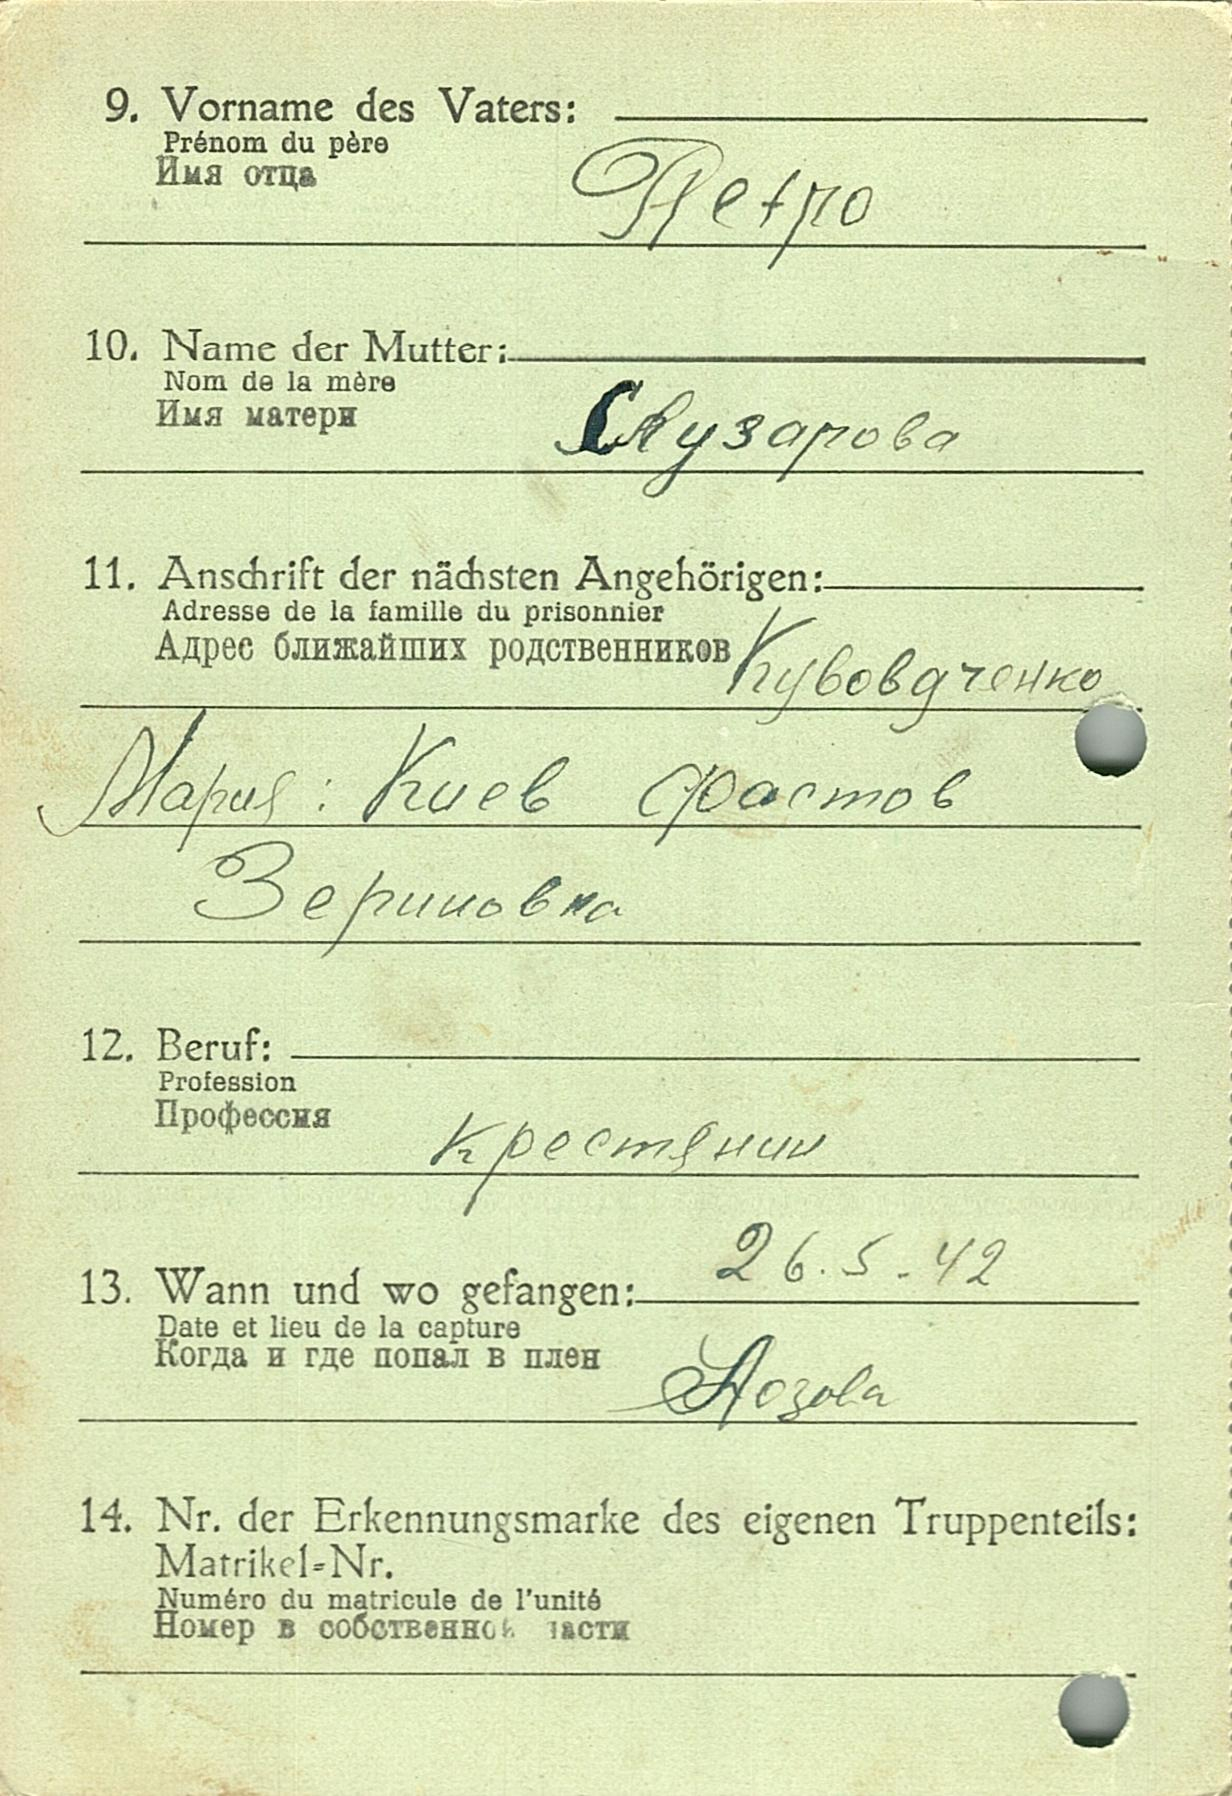 9. Vorname des Vaters:
Prénom du père
Имя отца
Петро
10. Name der Mutter:
Nom de la mère
Имя матери
11. Anschrift der nächsten Angehörigen:
Adresse de la famille du prisonnier
Адрес ближайших родственников
Мария: Киев Фастов
12. Beruf:
Profession
Профессия
крестянин
26.5.42
13. Wann und wo gefangen:
Date et lieu de la capture
Когда и где попал в плен
Лозова
14. Nr. der Erkennungsmarke des eigenen Truppenteils:
Matrikel-Nr.
Numéro du matricule de l'unité
Номер в собственной части